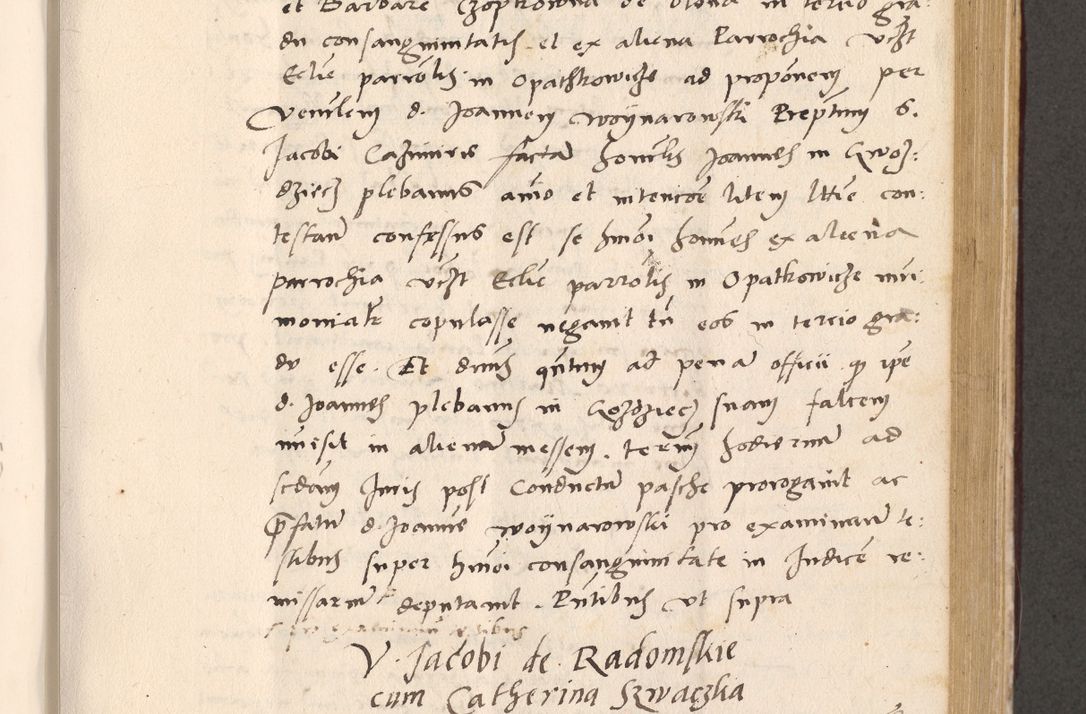 et Barbare Czopkowna de Olona in tercio gra:
du consanguinitatis et ex aliena Parrochia vczt
Eclie parrolis in Opathkowicze ad proponem per
Venlem d. Joannem Woÿnarowski Preptum S.
Jacobi Cazimiris factam honlis Joannes in Gwoz:
dziecz plebanus aio et intencoe litem lttie con:
testan confessus est se hmoi homines ex aliena
parrochia vczt Eclie parrolis in Opatkowicze mri:
monialr copulasse negavit tn eos in tercio gra:
du esse. Et dnus qntum ad penam officii qz ipe
d. Joannes plebanus in Gozdziecz suam falcem
misit in alienam messem. termn hodiernum ad
scdam Juris post Conductum pasche prorogavit ac
prefatum d. Joannem Woÿnarowski pro examinan te:
stibus super hmoi consanguinitate in Judicem re:
missarium deputavit. Pntibus vt supra
pro examinan testibus
V. Jacobi de Radomskie
cum Catherina Szwaczka